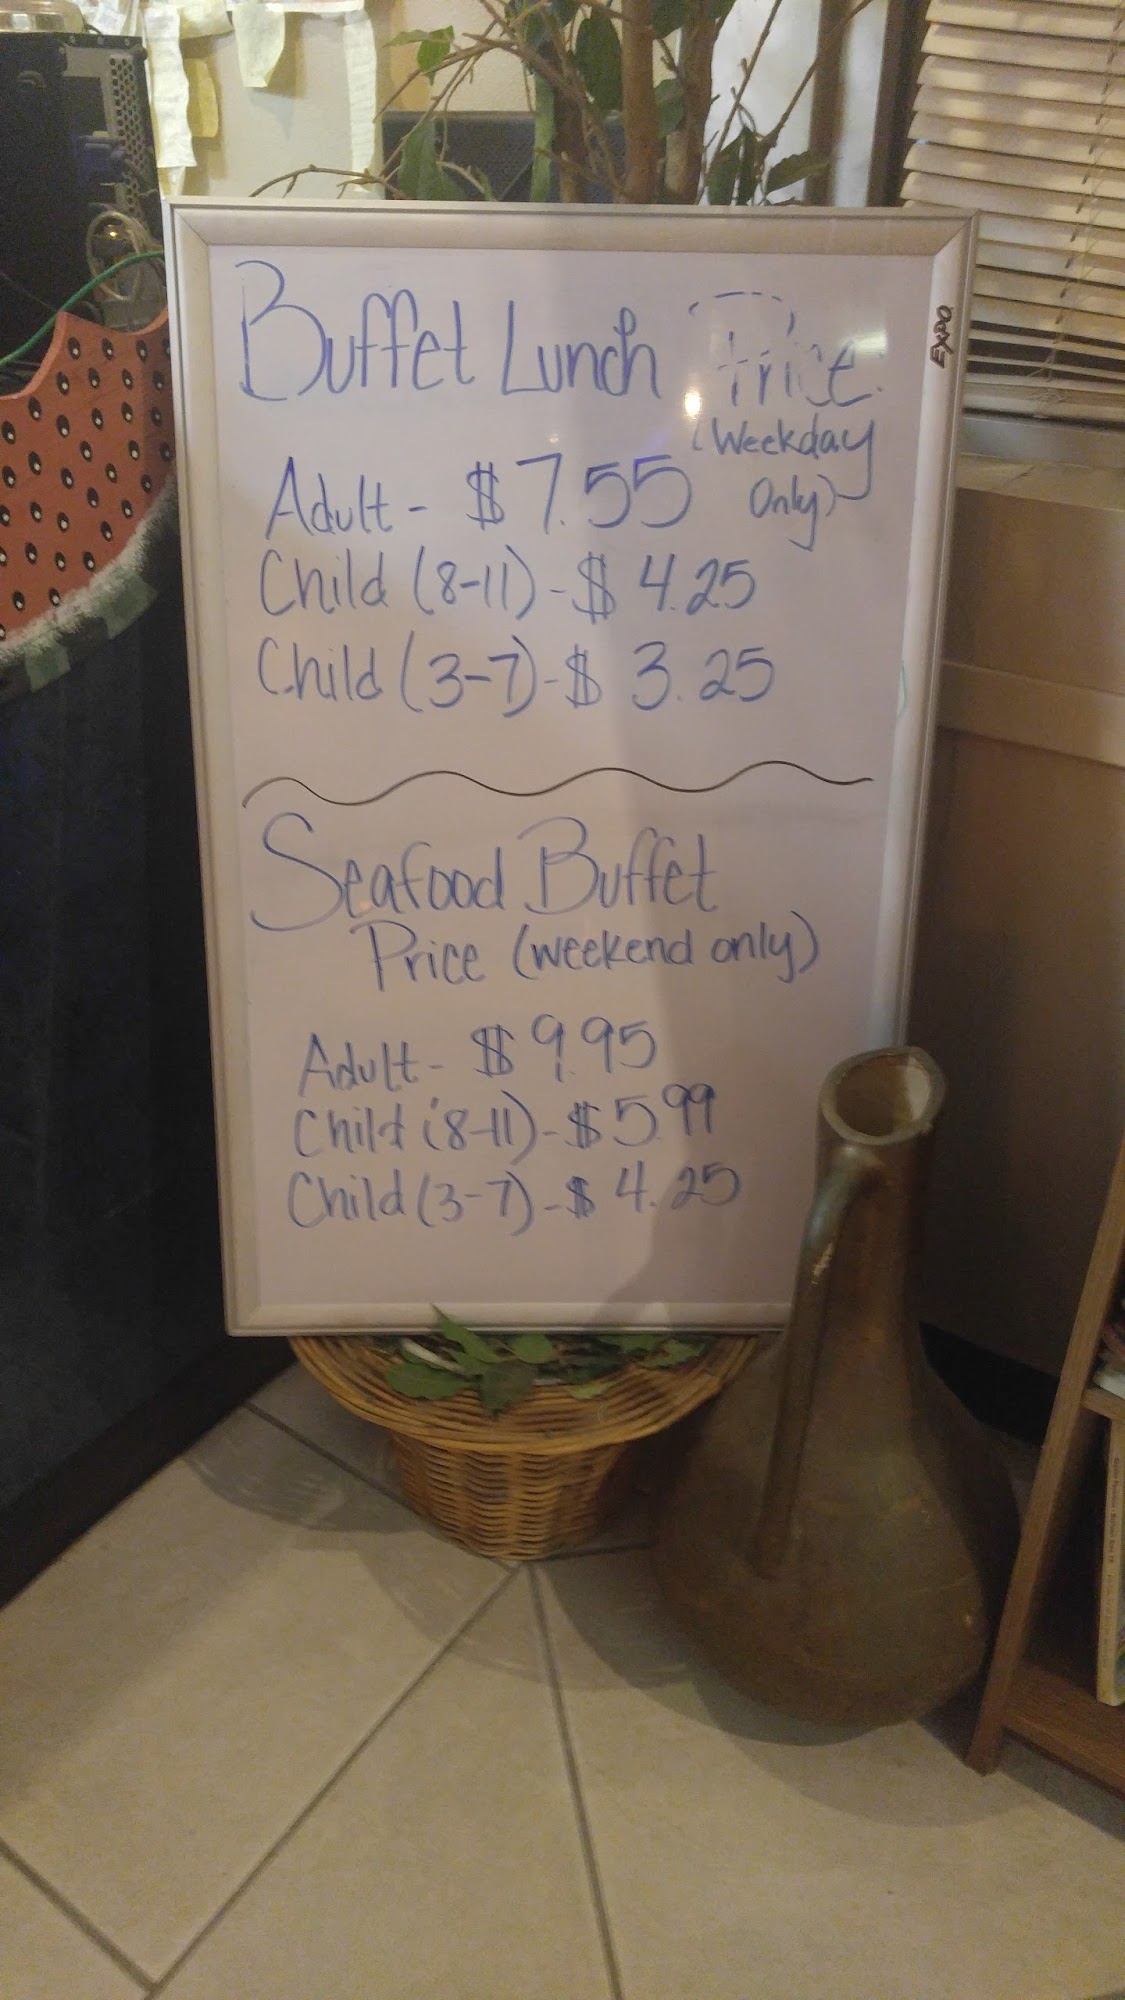 Buffet Lunch Price
(Weekday
Only)
Adult - $7.55
Child (8-11) - $4.25
Child (3-7) - $3.25
Seafood Buffet
Price (weekend only)
Adult - $9.95
Child (8-11) - $5.99
Child (3-7) - $4.25
EXPO